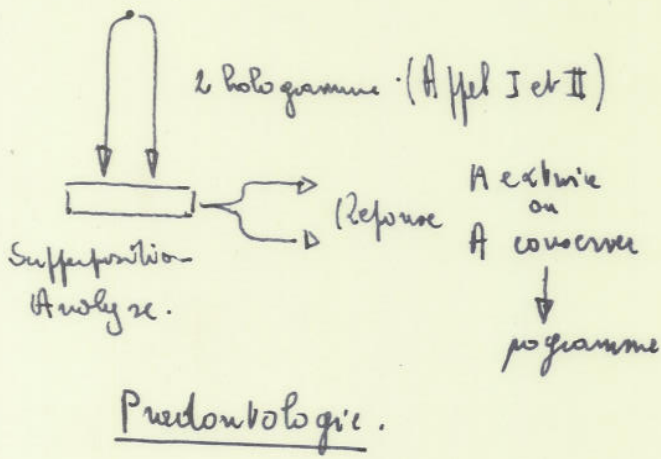 2 hologramme. (Appel I et II)
Supperposition
Analyse.
Réponse
A extraire
ou
A conserver
programme
Pnedontologie.